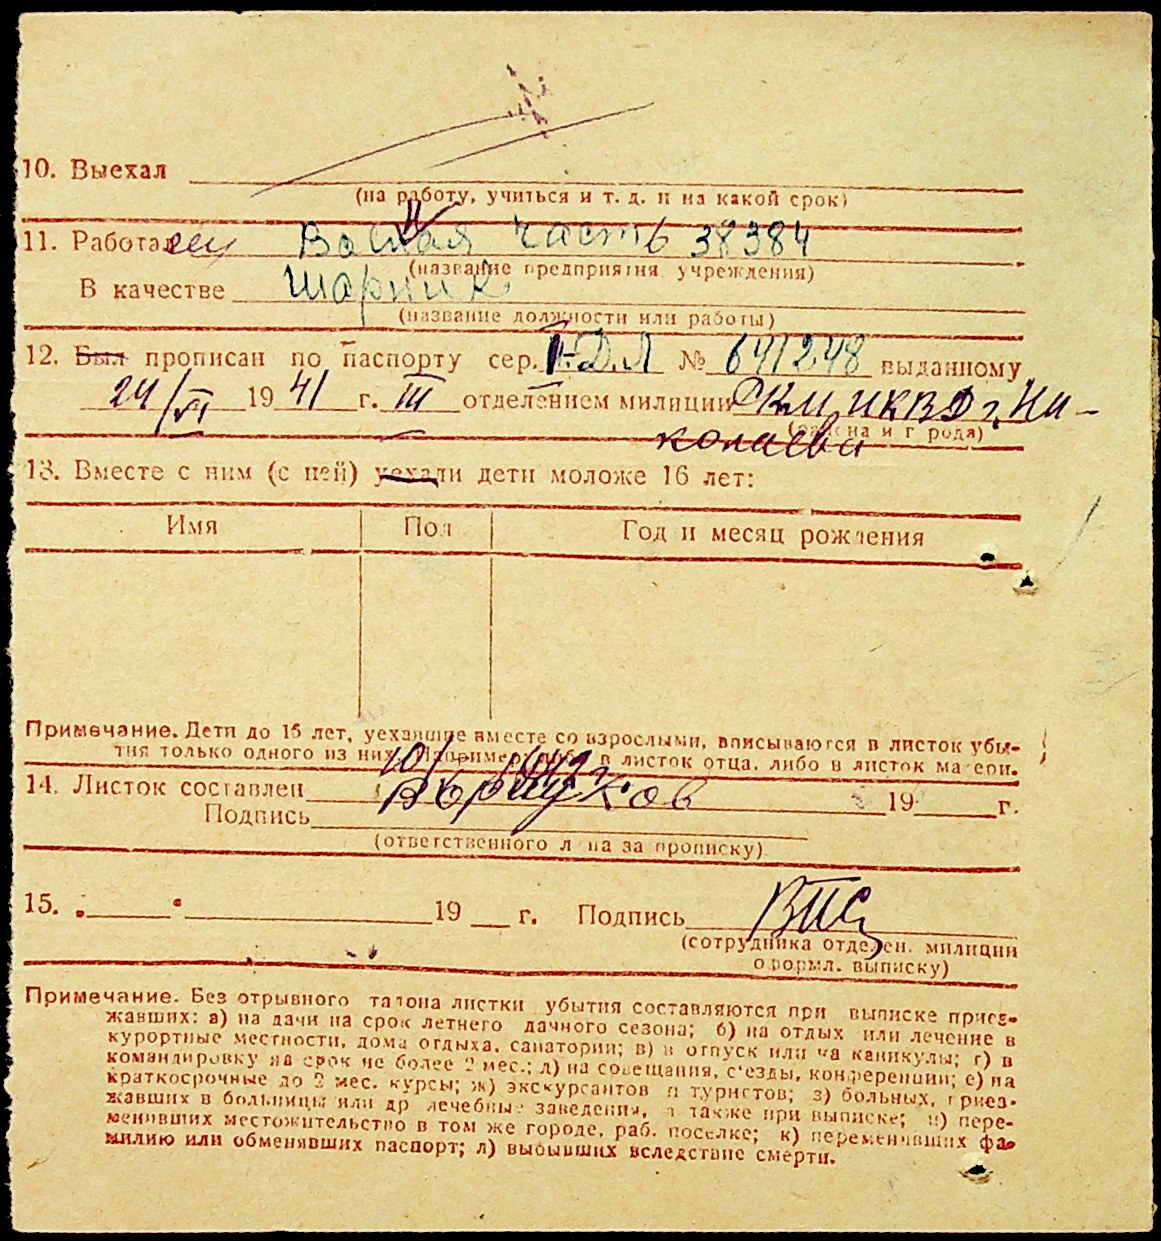 10. Выехал
(на работу, учиться и т. д. и на какой срок)
11. Работал Воиная часть 38384
(название предприятия учреждения)
В качестве
(название должности или работы)
12. Был прописан по паспорту сер. I-ДЛ № 641248 выданному
24/VI 1941 г. III отделением милиции РКМ НКВД г. Ни-
(района и города)
колаева
13. Вместе с ним (с ней) уехали дети моложе 16 лет:
Имя Пол Год и месяц рождения
Примечание. Дети до 16 лет, уехавшие вместе со взрослыми, вписываются в листок убы-
тия только одного из них. Например либо в листок отца, либо в листок матери.
14. Листок составлен 19 г.
Подпись
(ответственного лица за прописку)
15. „ “ 19 г. Подпись
(сотрудника отделен. милиции
оформл. выписку)
Примечание. Без отрывного талона листки убытия составляются при выписке приез-
жавших: а) на дачи на срок летнего дачного сезона; б) на отдых или лечение в
курортные местности, дома отдыха, санатории; в) в отпуск или на каникулы; г) в
командировку на срок не более 2 мес.; д) на совещания, съезды, конференции; е) на
краткосрочные до 2 мес. курсы; ж) экскурсантов и туристов; з) больных, приез-
жавших в больницы или др лечебные заведения, а также при выписке; и) пере-
менивших местожительство в том же городе, раб. поселке; к) переменивших фа-
милию или обменявших паспорт; л) выбывших вследствие смерти.